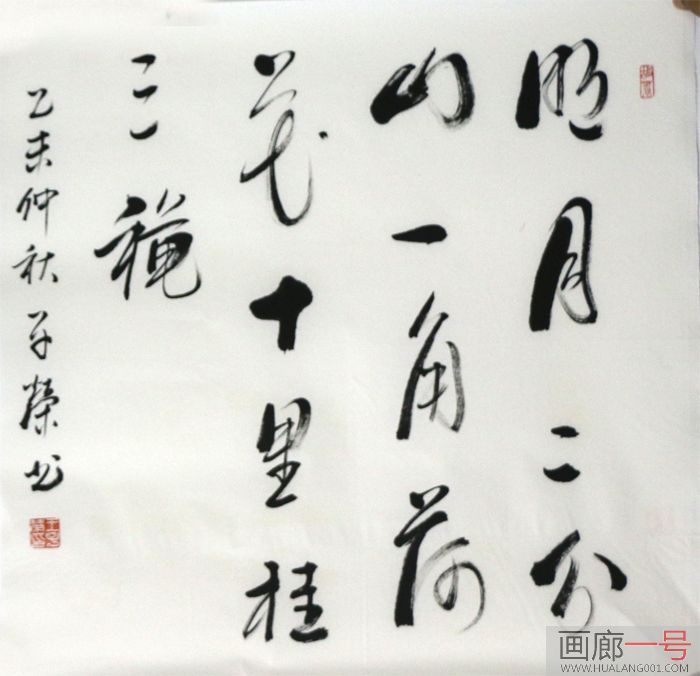 明月二分
山一角荷
花十里桂
三穐
乙未仲秋榮书
画廊一号
WWW.HUALANG001.COM